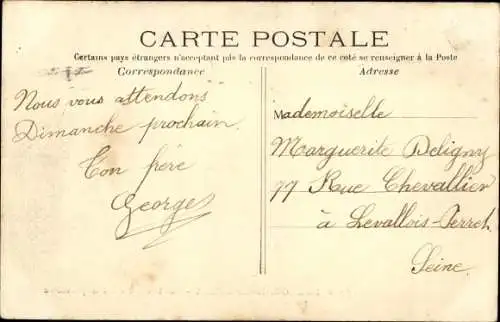 CARTE POSTALE
Certains pays étrangers n'acceptant pas la correspondance de ce coté se renseigner à la Poste
Correspondance
Adresse
Nous vous attendons
Dimanche prochain.
Ton frère
Georges
Mademoiselle
Marguerite Deligny
77 Rue Chevallier
à Levallois-Perret
Seine.